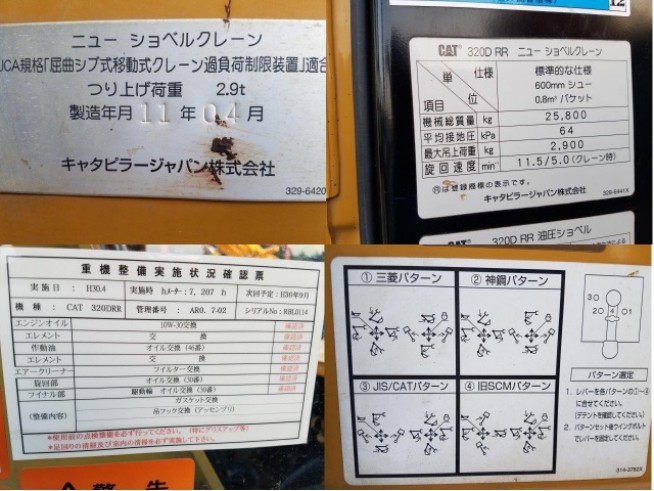 ニュー ショベルクレーン
JCA規格「屈曲ジブ式移動式クレーン過負荷制限装置」適合
つり上げ荷重 2.9t
製造年月 11年 04月
キャタピラージャパン株式会社
329-6420
12
CAT 320D RR ニュー ショベルクレーン
仕様 標準的な仕様
単 600mm シュー
項目 位 0.8m³ バケット
機械総質量 kg 25,800
平均接地圧 kPa 64
最大吊上荷重 kg 2,900
旋回速度 min 11.5/5.0(クレーン時)
®は登録商標の表示です。
キャタピラージャパン株式会社
CAT 320D RR 油圧ショベル
重機整備実施状況確認票
実施日: H30.4 実施時 hメーター: 7,207 h 次回予定: H30年9月
機種: CAT 320DRR 管理番号: AR0.7-02 シリアルNo:
エンジンオイル 10W-30交換 確認済
エレメント 交換 確認済
作動油 オイル交換 (46番) 確認済
エレメント 交換 確認済
エアークリーナー フイルター交換 確認済
旋回部 オイル交換 (30番) 確認済
フアイナル部 駆動輪 オイル交換 (30番) 確認済
ガスケット交換
(整備内容) 吊フック交換 (アッセンブリ)
*使用前の点検整備を必ず行ってください。(特にグリスアップ等)
*足回りの清掃及び室内の清掃を必ず実施して下さい。
警告
① 三菱パターン
② 神鋼パターン
③ JIS/CATパターン
④ 旧SCMパターン
3○
2○ 4 ○1
パターン選定
1. レバーを各パターンの①~④
に合せてください。
(デテントを確認してください)
2. パターンセット後ウイングボルト
でレバーを固定してください。